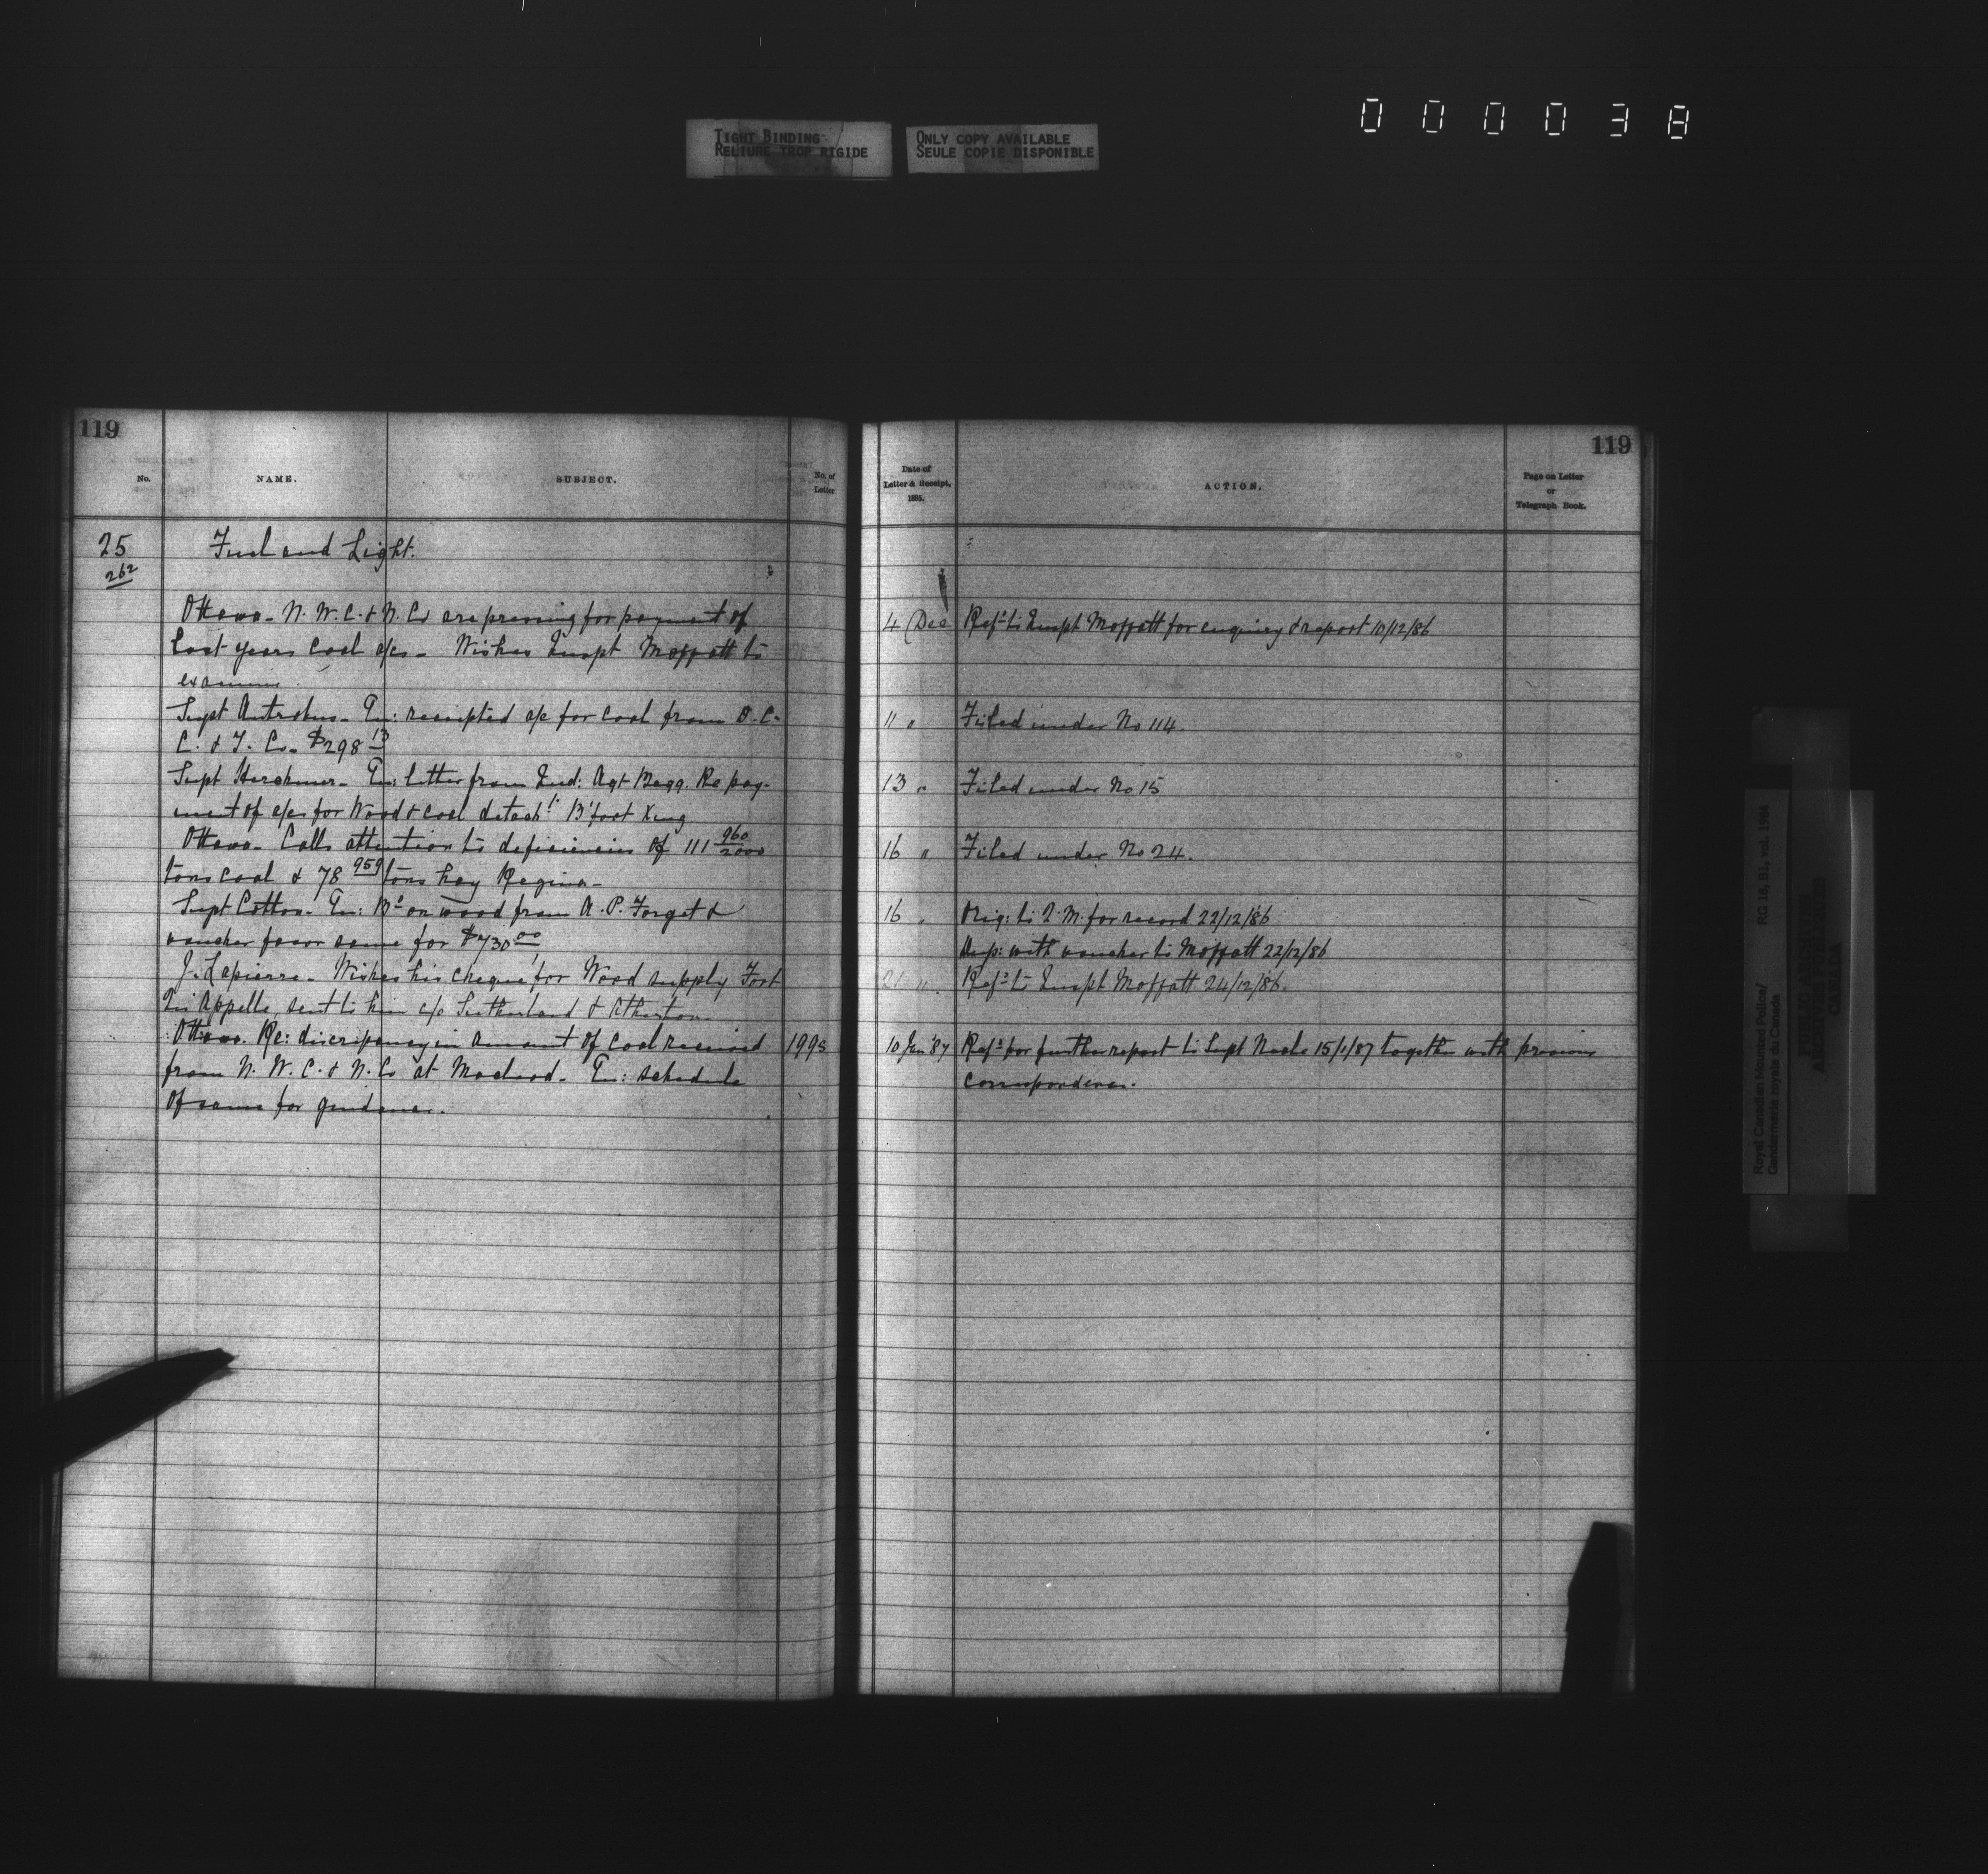 000038
TIGHT BINDING
RELIURE TROP RIGIDE
ONLY COPY AVAILABLE
SEULE COPIE DISPONIBLE
119
No.
NAME.
SUBJECT.
No. of
Letter
25
262
Fuel and Light.
Ottawa - N. W. C. & N. Co are pressing for payment of
last years coal a/cs - Wishes Inspt Moffatt to
examine
Supt Antrobus - En: receipted a/c for coal from O. C.
C. & T. Co. $298 13
Supt Herchmer - En: letter from Ind: Agt Begg. Re pay-
ment of a/cs for Wood & coal detacht B'foot Xing
Ottawa - Calls attention to deficiencies of 111 960/2000
tons coal & 78 959 tons hay Regina -
Supt Cotton - En: Bd on wood from A. P. Forget &
voucher favor same for $730 00
J. Lapierre - Wishes his cheque for Wood supply Fort
Qu'Appelle, sent to him c/o Sutherland & Atherton
Ottawa. Re: discrepancy in amount of coal received
from N. W. C. & N. Co at Macleod - En: schedule
of same for guidance.
1995
119
Date of
Letter & Receipt,
1885.
ACTION.
Page on Letter
or
Telegraph Book.
4 Dec Refd to Inspt Moffatt for enquiry & report 10/12/86
11 " Filed under No 114.
13 " Filed under No 15
16 " Filed under No 24.
16 " Orig: to Q. M. for record 22/12/86
Dup: with voucher to Moffatt 22/12/86
21 " Refd to Inspt Moffatt 24/12/86.
10 Jan '87 Refd for further report to Supt Neale 15/1/87 together with previous
correspondence.
Royal Canadian Mounted Police/
Gendarmerie royale du Canada
RG 18, B1, vol. 1984
PUBLIC ARCHIVES
ARCHIVES PUBLIQUES
CANADA